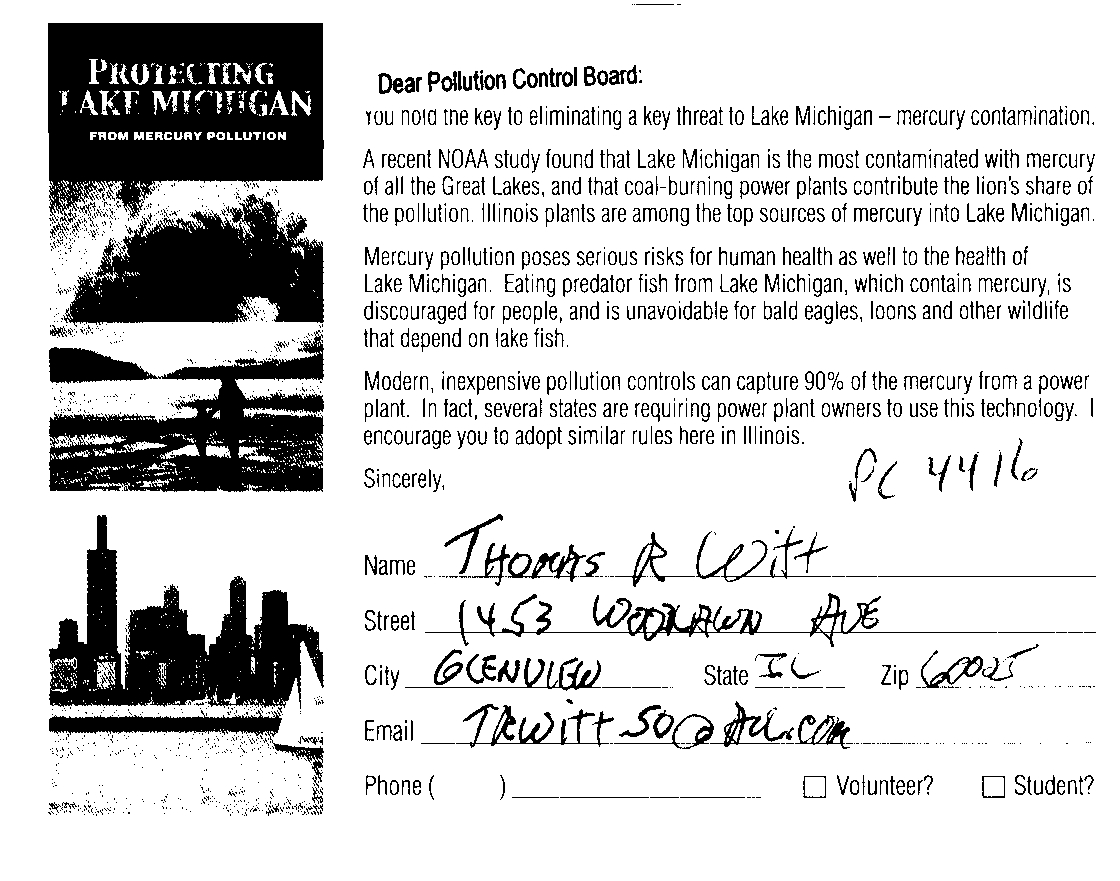 PROTECTING
LAKE MICHIGAN
FROM MERCURY POLLUTION
Dear Pollution Control Board:
You hold the key to eliminating a key threat to Lake Michigan – mercury contamination.
A recent NOAA study found that Lake Michigan is the most contaminated with mercury
of all the Great Lakes, and that coal-burning power plants contribute the lion's share of
the pollution. Illinois plants are among the top sources of mercury into Lake Michigan.
Mercury pollution poses serious risks for human health as well to the health of
Lake Michigan. Eating predator fish from Lake Michigan, which contain mercury, is
discouraged for people, and is unavoidable for bald eagles, loons and other wildlife
that depend on lake fish.
Modern, inexpensive pollution controls can capture 90% of the mercury from a power
plant. In fact, several states are requiring power plant owners to use this technology. I
encourage you to adopt similar rules here in Illinois.
Sincerely,
PC 4416
Name THOMAS R Witt
Street 1453 WOODLAWN AVE
City GLENVIEW State IL Zip 60025
Email TRWitt50@AOL.COM
Phone ( ) Volunteer? Student?